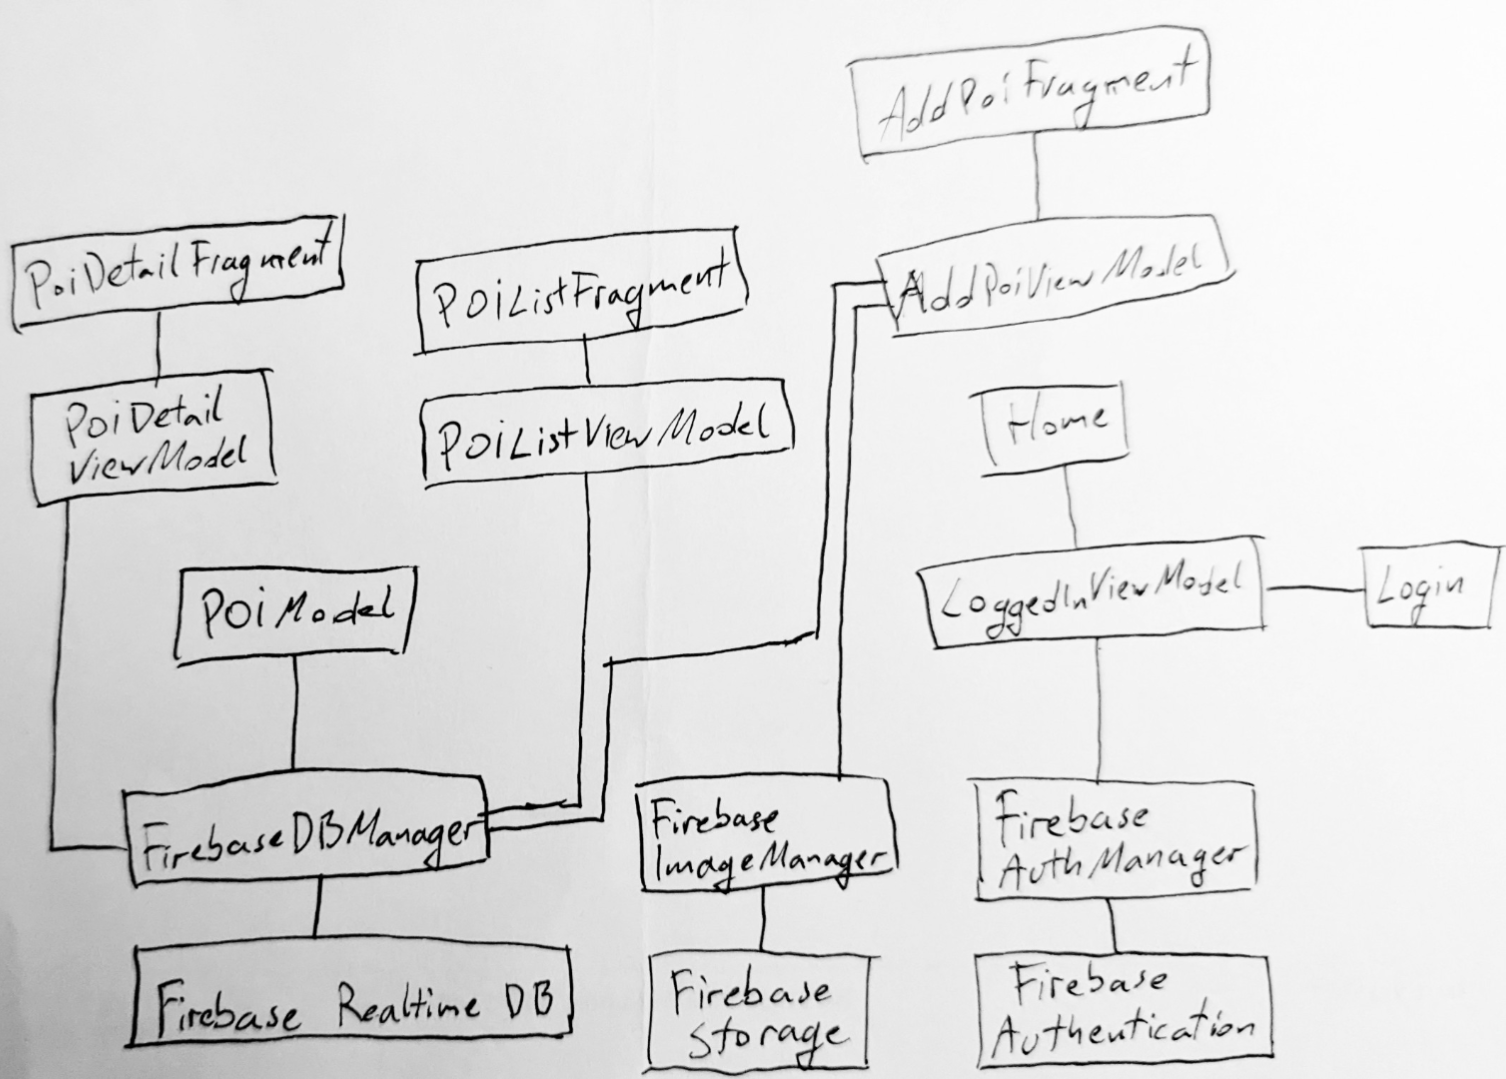 AddPoiFragment
PoiDetailFragment
POiListFragment
AddPoiViewModel
PoiDetail
ViewModel
POiListViewModel
Home
POiModel
LoggedInViewModel
Login
FirebaseDBManager
Firebase
ImageManager
Firebase
AuthManager
Firebase Realtime DB
Firebase
Storage
Firebase
Authentication